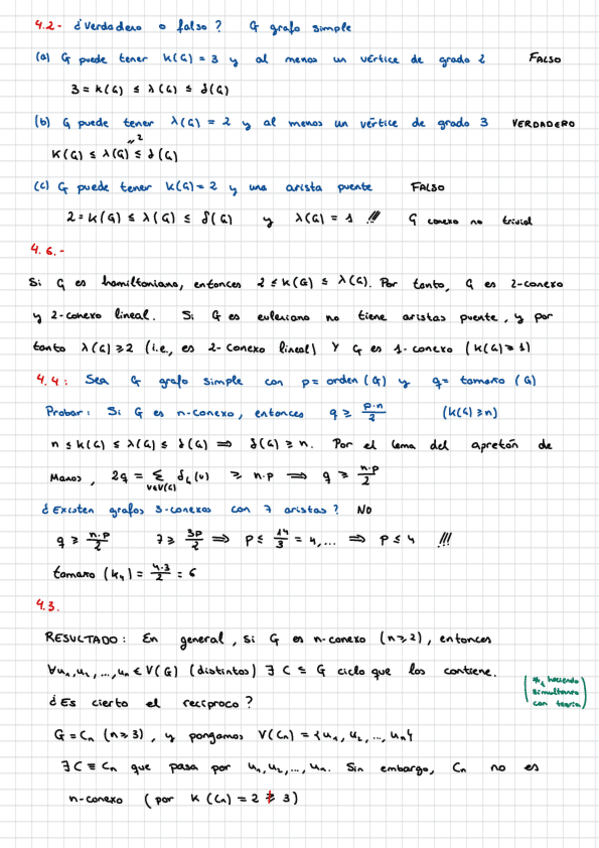 4.2- ¿Verdadero o falso? G grafo simple
(a) G puede tener K(G) = 3 y al menos un vértice de grado 2 FALSO
3 = K(G) ≤ λ(G) ≤ δ(G)
(b) G puede tener λ(G) = 2 y al menos un vértice de grado 3 VERDADERO
K(G) ≤ λ(G) ≤ δ(G)
"2
(c) G puede tener K(G) = 2 y una arista puente FALSO
2 = K(G) ≤ λ(G) ≤ δ(G) y λ(G) = 1 !!! G conexo no trivial
4.6.-
Si G es hamiltoniano, entonces 2 ≤ K(G) ≤ λ(G). Por tanto, G es 2-conexo
y 2-conexo lineal. Si G es euleriano no tiene aristas puente, y por
tanto λ(G) ≥ 2 (i.e., es 2-conexo lineal) Y G es 1-conexo (K(G) ≥ 1)
4.4: Sea G grafo simple con p = orden (G) y q = tamaño (G)
Probar: Si G es n-conexo, entonces q ≥ p·n/2 (K(G) ≥ n)
n ≤ K(G) ≤ λ(G) ≤ δ(G) ⟹ δ(G) ≥ n. Por el lema del apretón de
Manos, 2q = Σ_{v∈V(G)} δ_G(v) ≥ n·p ⟹ q ≥ n·p/2
¿Existen grafos 3-conexos con 7 aristas? NO
q ≥ n·p/2 7 ≥ 3p/2 ⟹ p ≤ 14/3 = 4,... ⟹ p ≤ 4 !!!
tamaño (K₄) = 4·3/2 = 6
4.3.
RESULTADO: En general, si G es n-conexo (n≥2), entonces
∀u₁,u₂,...,uₙ ∈ V(G) (distintos) ∃ C ⊆ G ciclo que los contiene.
(*, haciendo
simultaneo
con teoría)
¿Es cierto el recíproco?
G = Cₙ (n≥3), y pongamos V(Cₙ) = {u₁, u₂, ..., uₙ}
∃ C ≡ Cₙ que pasa por u₁, u₂, ..., uₙ. Sin embargo, Cₙ no es
n-conexo (por K(Cₙ) = 2 ≱ 3)